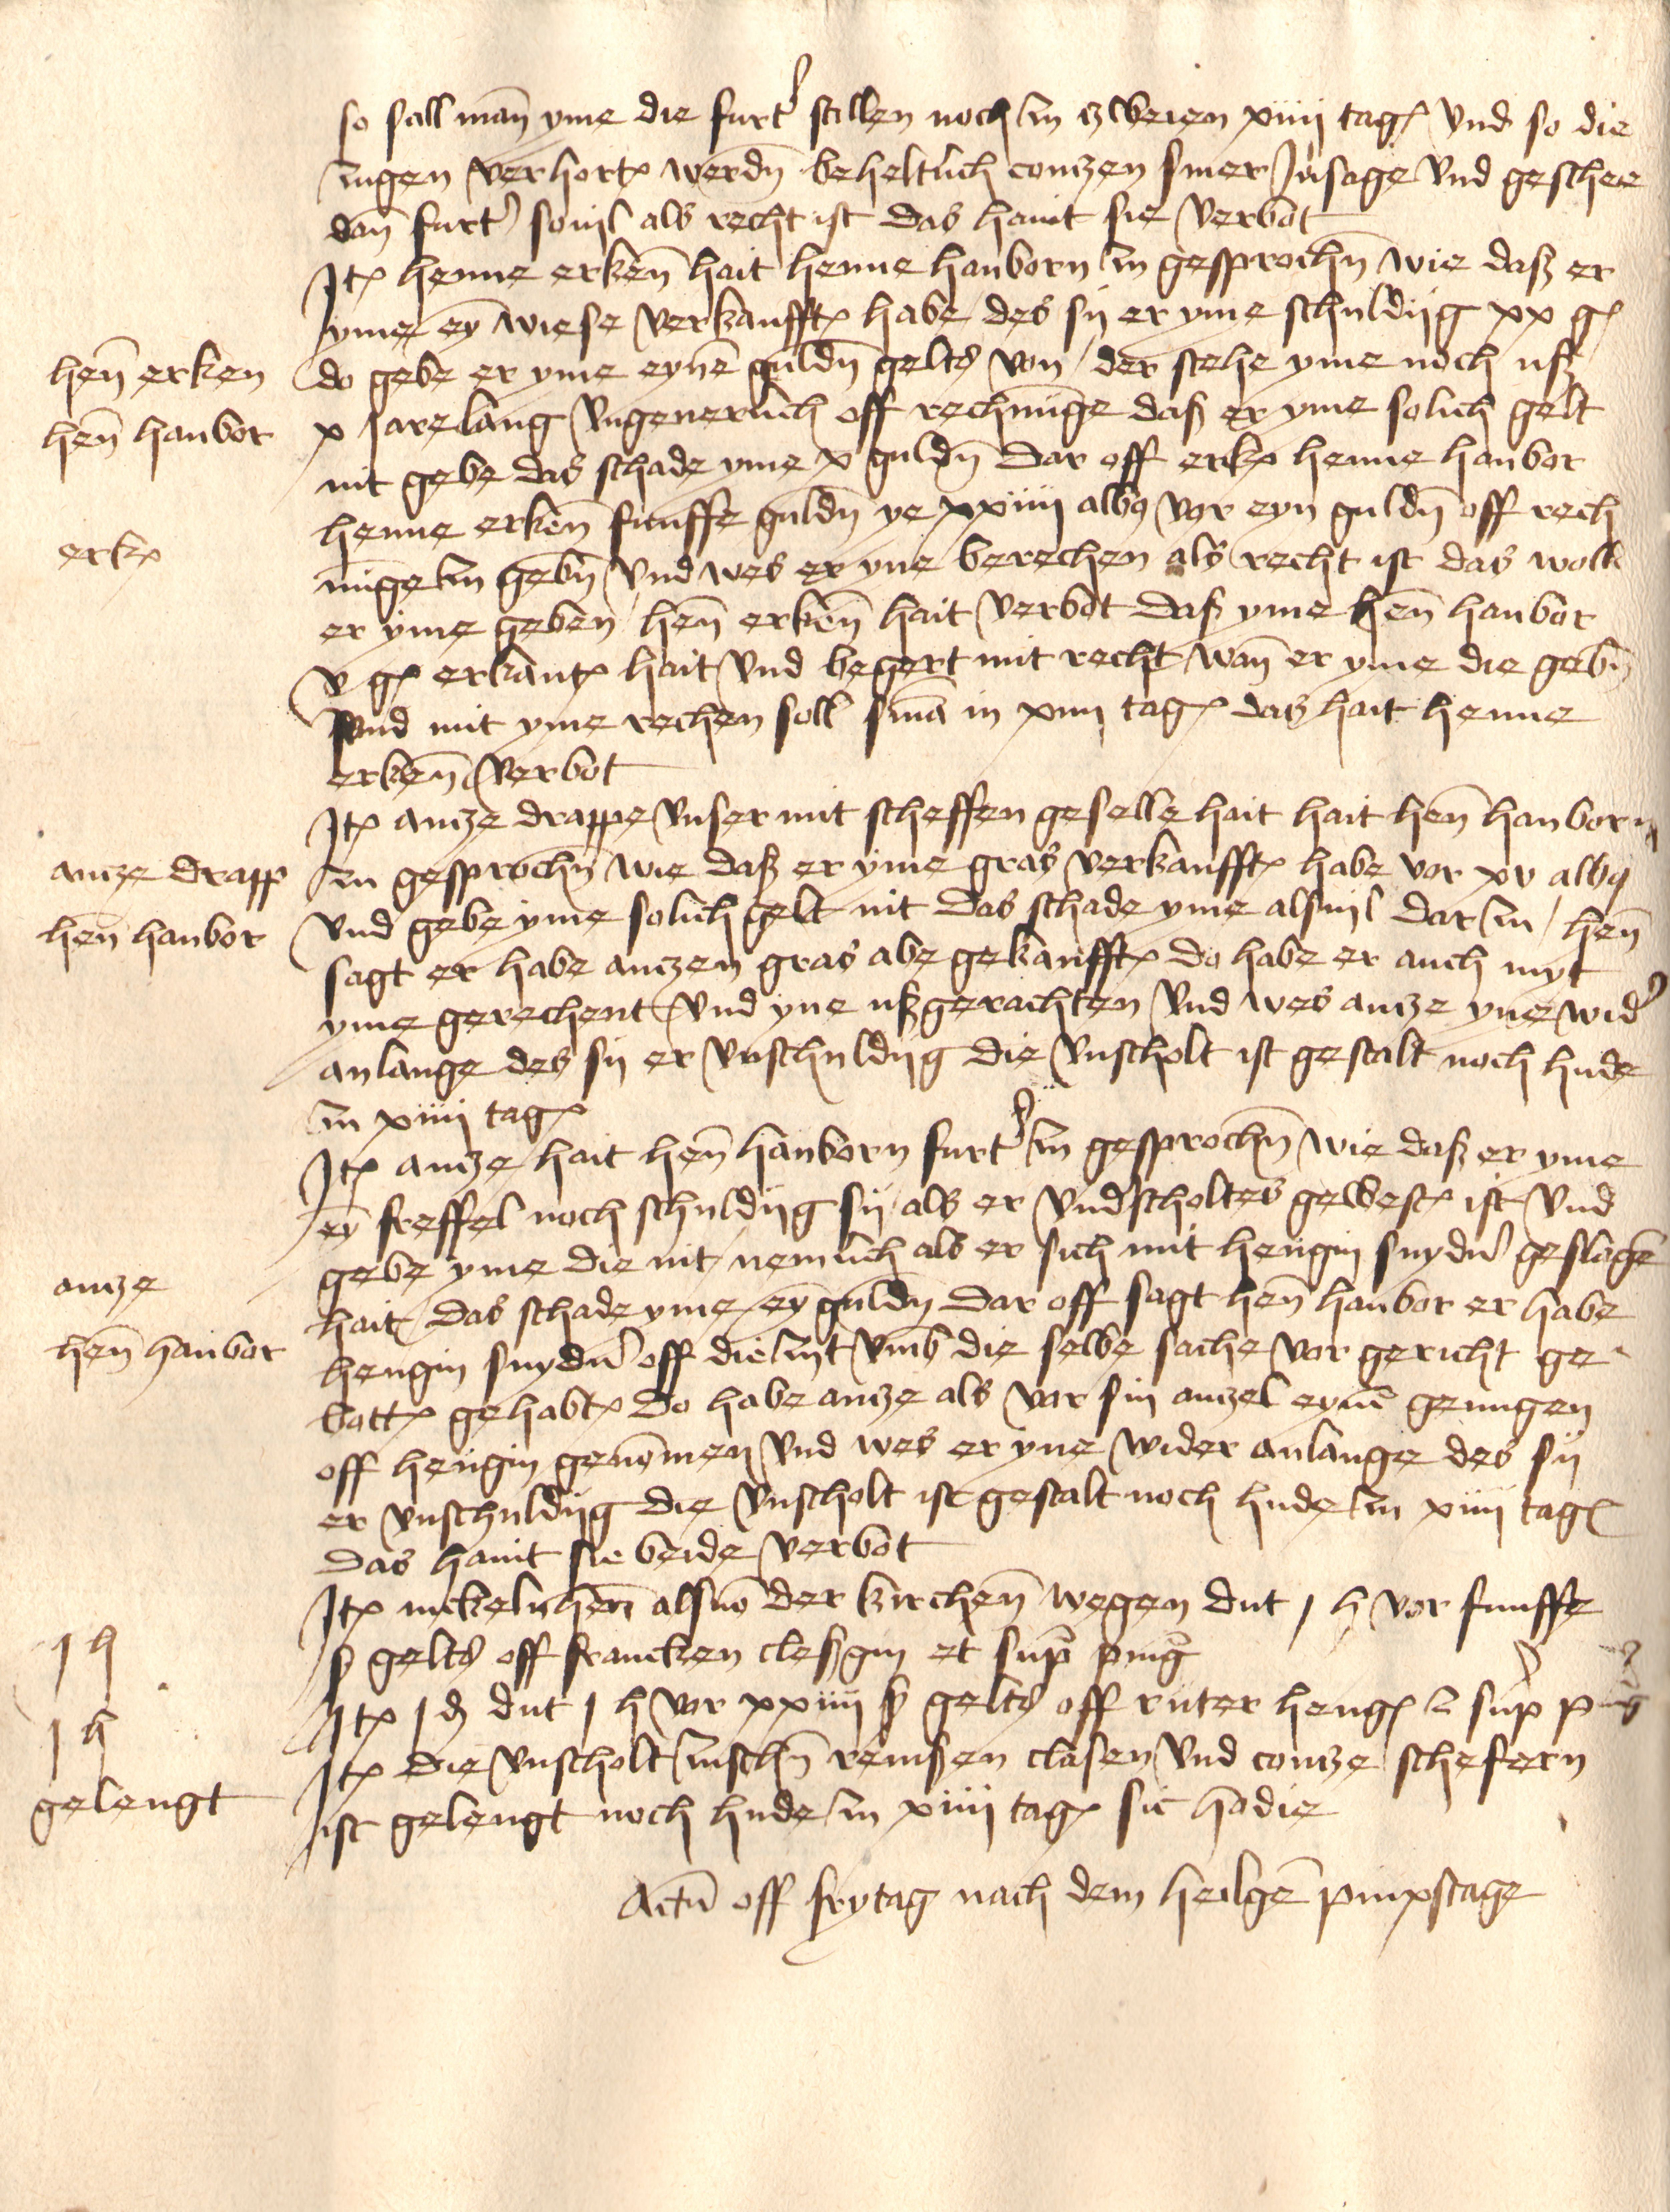 so sall man yme die furt' stillen noch in zweien xiiii tag(en) und so die
iugen verhort werdn beheltlich contzen siner Insage und geschee
dan furt' souil als recht ist das hant sie verbot
Jt(em) henne erken hait henne hanborn in gesprochn wie daß er
yme ey wiese verkaufft habe des sij er yme schuldijg xx g(ulden)
hen erken
do gebe er yme eynē guldn gelts von der stehe yme noch uß
hen hanbor
x jarelang ungeuerlich off rechnunge daß er yme solich gelt
nit gebe das schade yme x guldn Dar off erk(ent) henne hanbor
henne erken funffe guldn ye xxiiii albus vor eyn guldn off rech
erk(ent)
nunge in gebn und wes er yne berechen als recht ist das wolle
er yme geben hen erken hait verbot daß yme hen hanbor
v g(ulden) erkant hait und begert mit recht wan er yme die gebn
und mit yme rechen soll s(e)n(tenci)a in xiiii tag(en) das hait henne
erken verbot
Jt(em) antze drappe unser mit scheffen geselle hait hait hen hanborn
antze drapp
in gesprochn wie daß er yme gras verkaufft habe vor xv albus
hen hanbor
und gebe yme solich gelt nit das schade yme alsuil dar in hen
sagt er habe antzen gras abe gekaufft do habe er auch myt
yme gerechent und yne ußgerachten und wes antze yne wid'
anlange des sij er unschuldijg die unscholt ist gestalt noch hude
in xiiii tag(en)
Jt(em) antze hait hen hanborn furt' in gesprochn wie daß er yme
ey freffel noch schuldijg sij als er und'scholtes gewest ist und
gebe yme die nit nemlich als er sich mit hengin snyd'n geslagē
antze
hait das schade yme ey guldn dar off sagt hen hanbor er habe
hen hanbor
hengin snyd'n off die zijt umb die selbe sache vor gericht ge
bott gehabt Do habe antze als vor sin antzel eynē genugen
off hengin genōmen und wes er yne wider anlange des sij
er unschuldijg die unscholt ist gestalt noch hude in xiiii tag(en)
Das hant sie beide verbot
Jt(em) nickeln hen als vō der kirchen wegen dut j h vor funffe
j h
ß gelts off francken cleßgin et sup' ping
Jt(em) Id(em) dut j h vor xxiiii ß gelts off ruter heng(in) et sup' ping
j h
Jt(em) die unscholt zuschn reinßen clasen und contze schefern
gelengt
ist gelengt noch hude in xiiii tag(en) sic hodie
Actū off frytag nach dem heilgē pinxstage